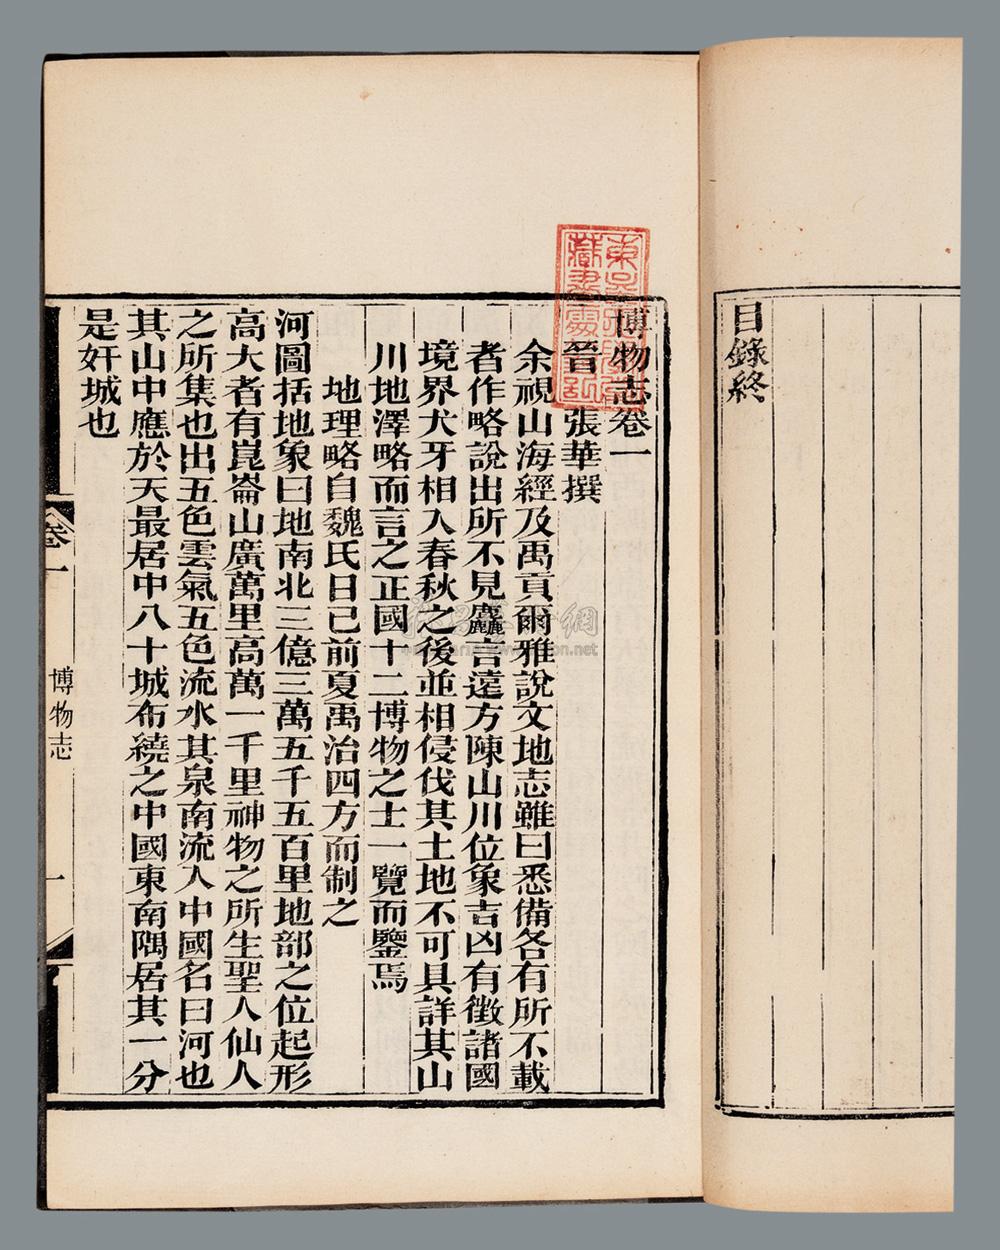 目錄終
博物志卷一
晉 張華撰
余視山海經及禹貢爾雅說文地志雖曰悉備各有所不載
者作略說出所不見麤言遠方陳山川位象吉凶有徵諸國
境界犬牙相入春秋之後並相侵伐其土地不可具詳其山
川地澤略而言之正國十二博物之士一覽而鑒焉
地理略自魏氏日已前夏禹治四方而制之
河圖括地象曰地南北三億三萬五千五百里地部之位起形
高大者有崑崙山廣萬里高萬一千里神物之所生聖人仙人
之所集也出五色雲氣五色流水其泉南流入中國名曰河也
其山中應於天最居中八十城布繞之中國東南隅居其一分
是奸城也
卷一
博物志
一